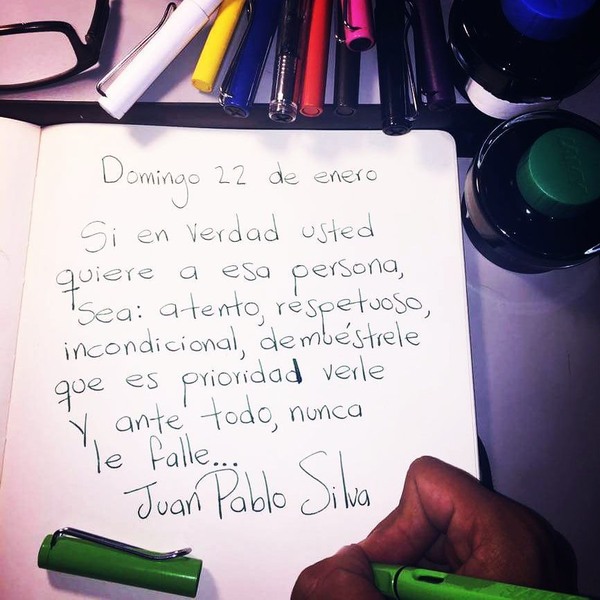 Domingo 22 de enero
Si en verdad usted
quiere a esa persona,
sea: atento, respetuoso,
incondicional, demuéstrele
que es prioridad verle
y ante todo, nunca
le falle...
Juan Pablo Silva